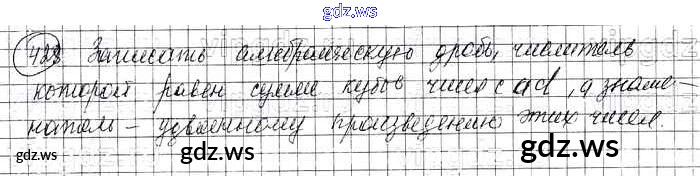 gdz.ws
428 Записать алгебраическую дробь, числитель
которой равен сумме кубов чисел c и d, а знаме-
натель – удвоенному произведению этих чисел.
gdz.ws
gdz.ws
gdz.ws